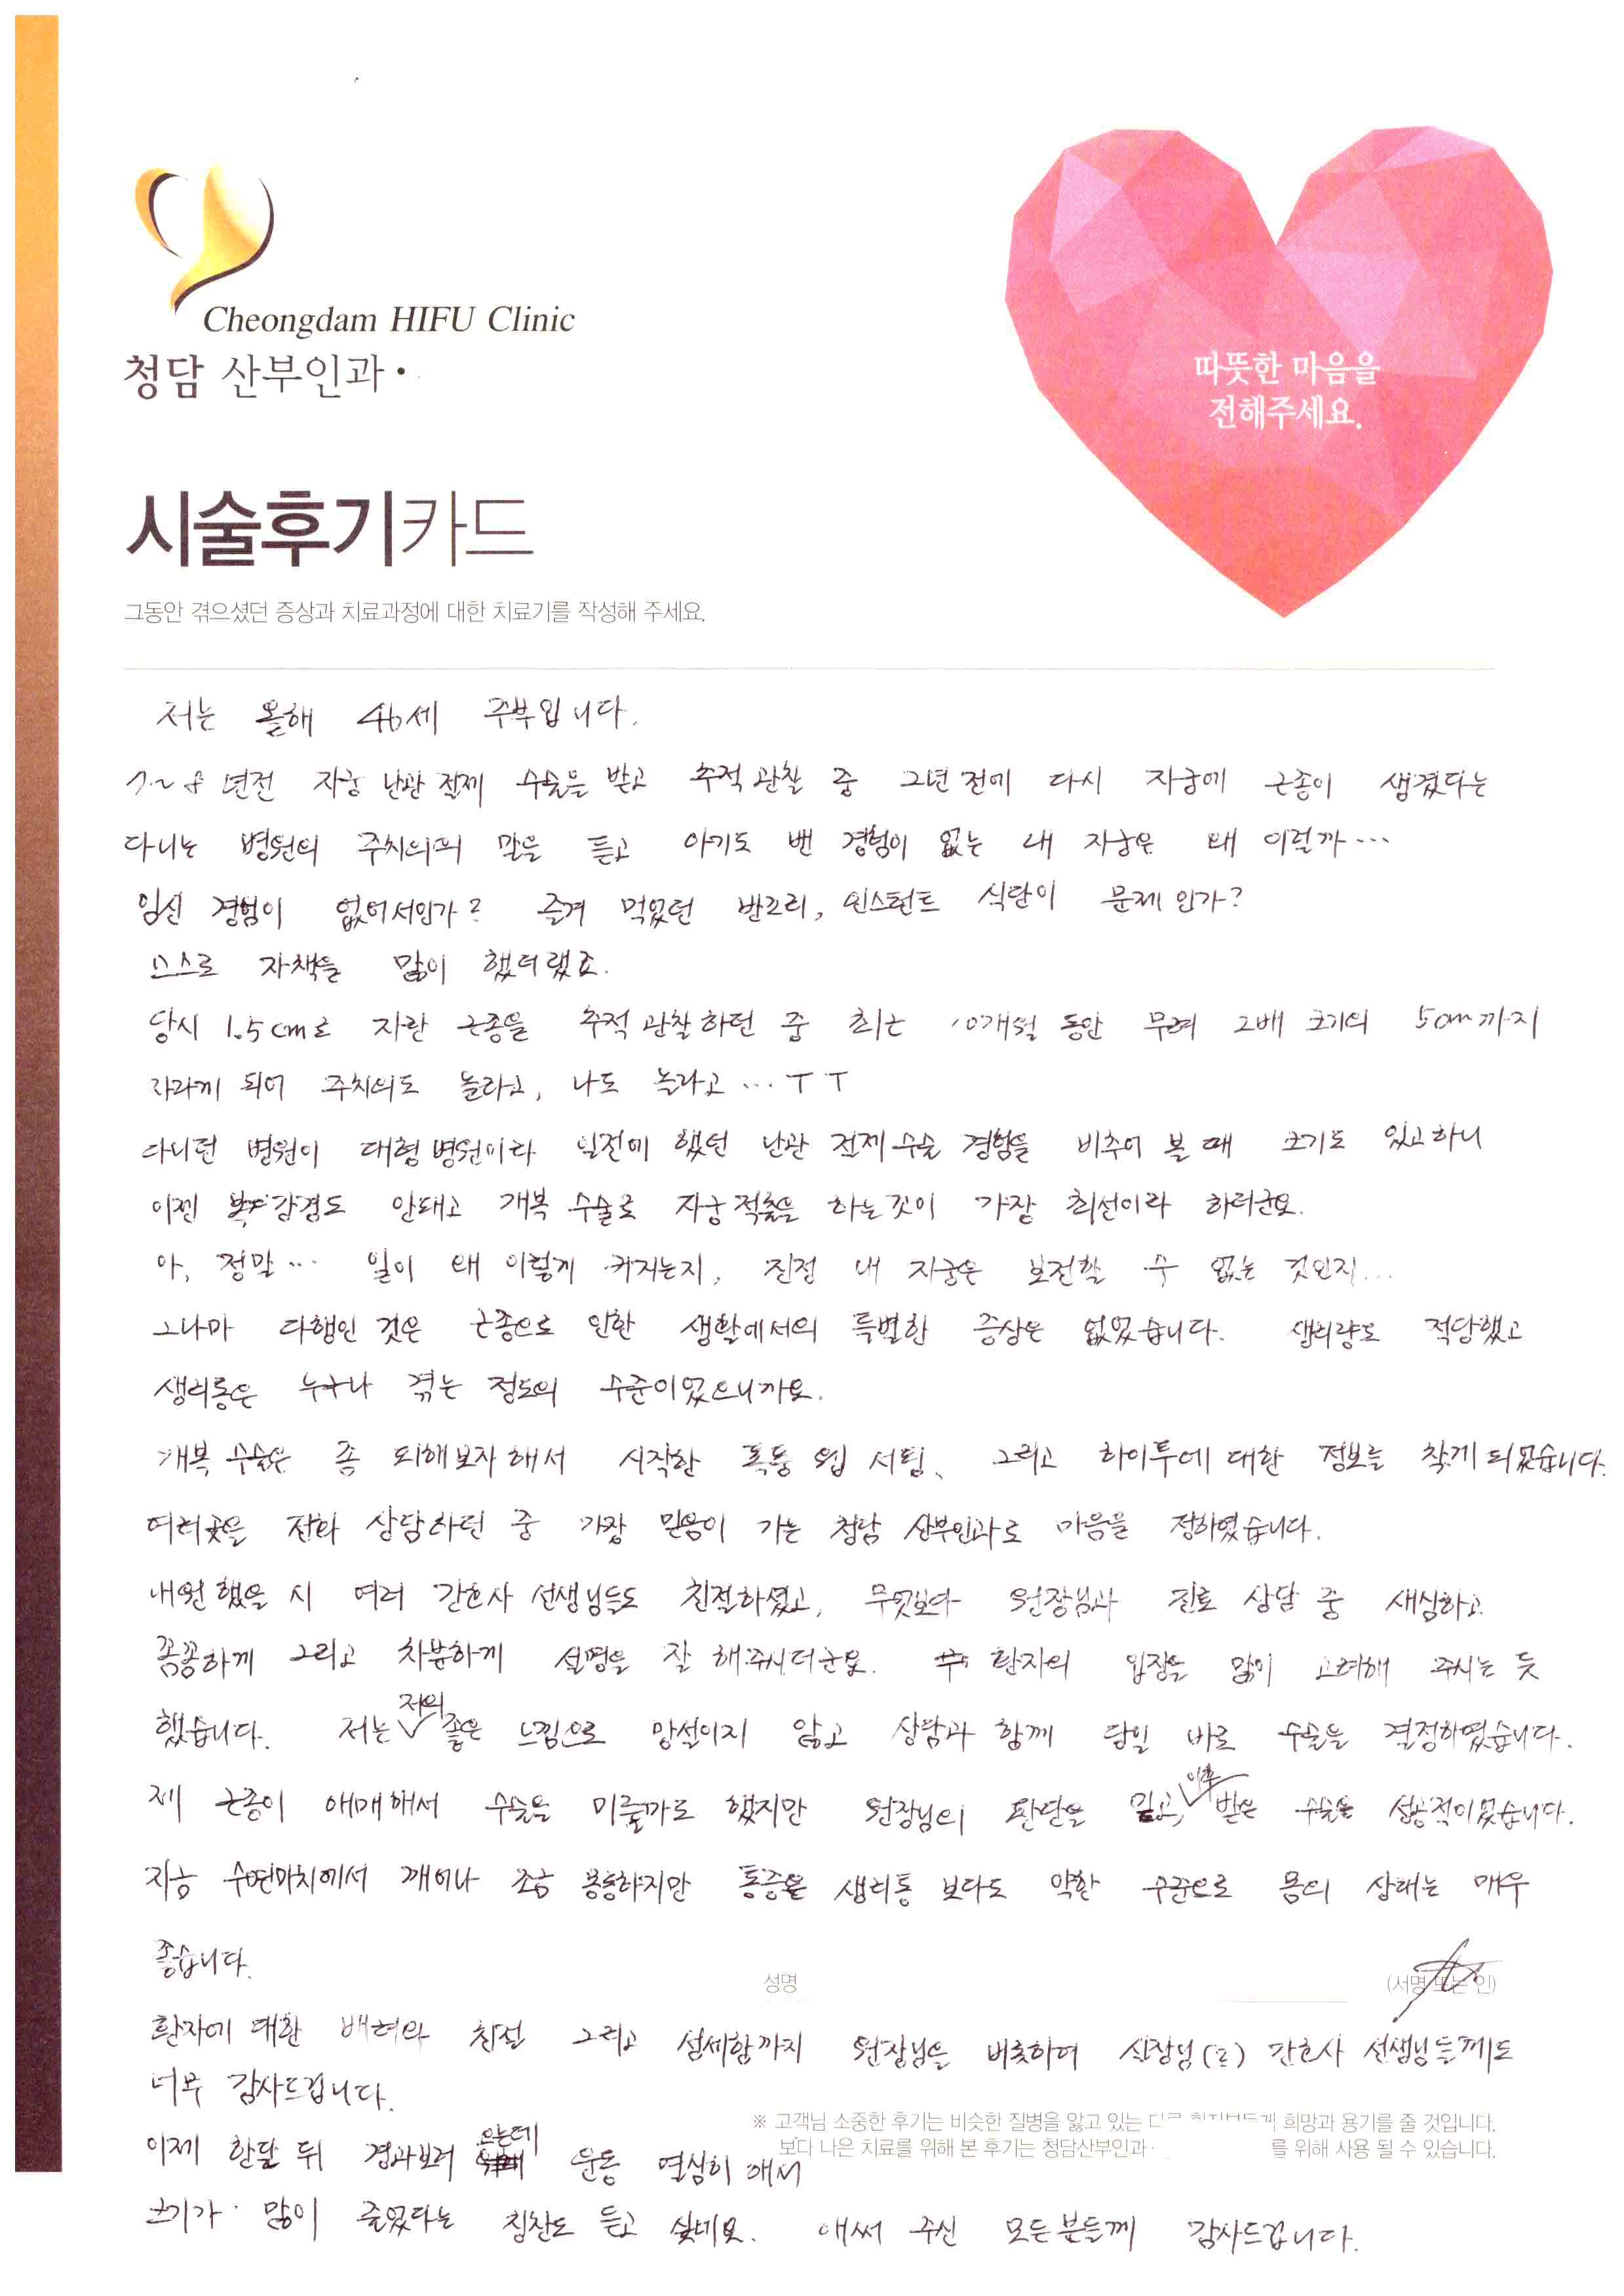 Cheongdam HIFU Clinic
청담 산부인과
따뜻한 마음을
전해주세요.
시술후기카드
그동안 겪으셨던 증상과 치료과정에 대한 치료기를 작성해 주세요.
저는 올해 46세 주부입니다.
7~8년전 자궁 난관 절제 수술을 받고 추적 관찰 중 2년 전에 다시 자궁에 근종이 생겼다는
다니는 병원의 주치의의 말을 듣고 아기도 밴 경험이 없는 내 자궁은 왜 이럴까…
임신 경험이 없어서인가? 즐겨 먹었던 밴고리, 인스턴트 식단이 문제인가?
스스로 자책을 많이 했더랬죠.
당시 1.5cm로 자란 근종을 추적 관찰하던 중 최근 10개월 동안 무려 2배 크기의 5cm까지
자라게 되어 주치의도 놀라고, 나도 놀라고… ㅜㅜ
다니던 병원이 대형병원이라 일전에 했던 난관 절제 수술 경험을 비추어 볼 때 크기도 있고하니
이젠 복강경도 안돼고 개복 수술로 자궁 적출을 하는것이 가장 최선이라 하더군요.
아, 정말… 일이 왜 이렇게 커지는지, 진정 내 자궁은 보전할 수 없는 것인지…
그나마 다행인 것은 근종으로 인한 생활에서의 특별한 증상은 없었습니다. 생리량도 적당했고
생리통은 누구나 겪는 정도의 수준이었으니까요.
개복 수술은 좀 피해보자해서 시작한 폭풍 웹 서핑, 그리고 하이푸에 대한 정보를 찾게 되었습니다.
여러곳을 전화 상담하던 중 가장 믿음이 가는 청담 산부인과로 마음을 정하였습니다.
내원했을 시 여러 간호사 선생님들도 친절하셨고, 무엇보다 원장님과 진료 상담 중 세심하고
꼼꼼하게 그리고 차분하게 설명을 잘 해주시더군요. 환자의 입장을 많이 고려해 주시는 듯
했습니다. 저는 저의 좋은 느낌으로 망설이지 않고 상담과 함께 당일 바로 수술을 결정하였습니다.
제 근종이 애매해서 수술을 미룰까도 했지만 원장님의 판단을 믿고, 이후 받은 수술을 성공적이었습니다.
지금 수면마취에서 깨어나 조금 몽롱하지만 통증은 생리통 보다도 약한 수준으로 몸의 상태는 매우
좋습니다.
성명 (서명 또는 인)
환자에 대한 배려와 친절 그리고 섬세함까지 원장님을 비롯하여 실장님(?) 간호사 선생님들께도
너무 감사드립니다.
※ 고객님 소중한 후기는 비슷한 질병을 앓고 있는 희망과 용기를 줄 것입니다.
보다 나은 치료를 위해 본 후기는 청담산부인과 를 위해 사용 될 수 있습니다.
이제 한달 뒤 경과보러 오는데 운동 열심히 해서
크기가 많이 줄었다는 칭찬도 듣고 싶네요. 애써 주신 모든분들께 감사드립니다.